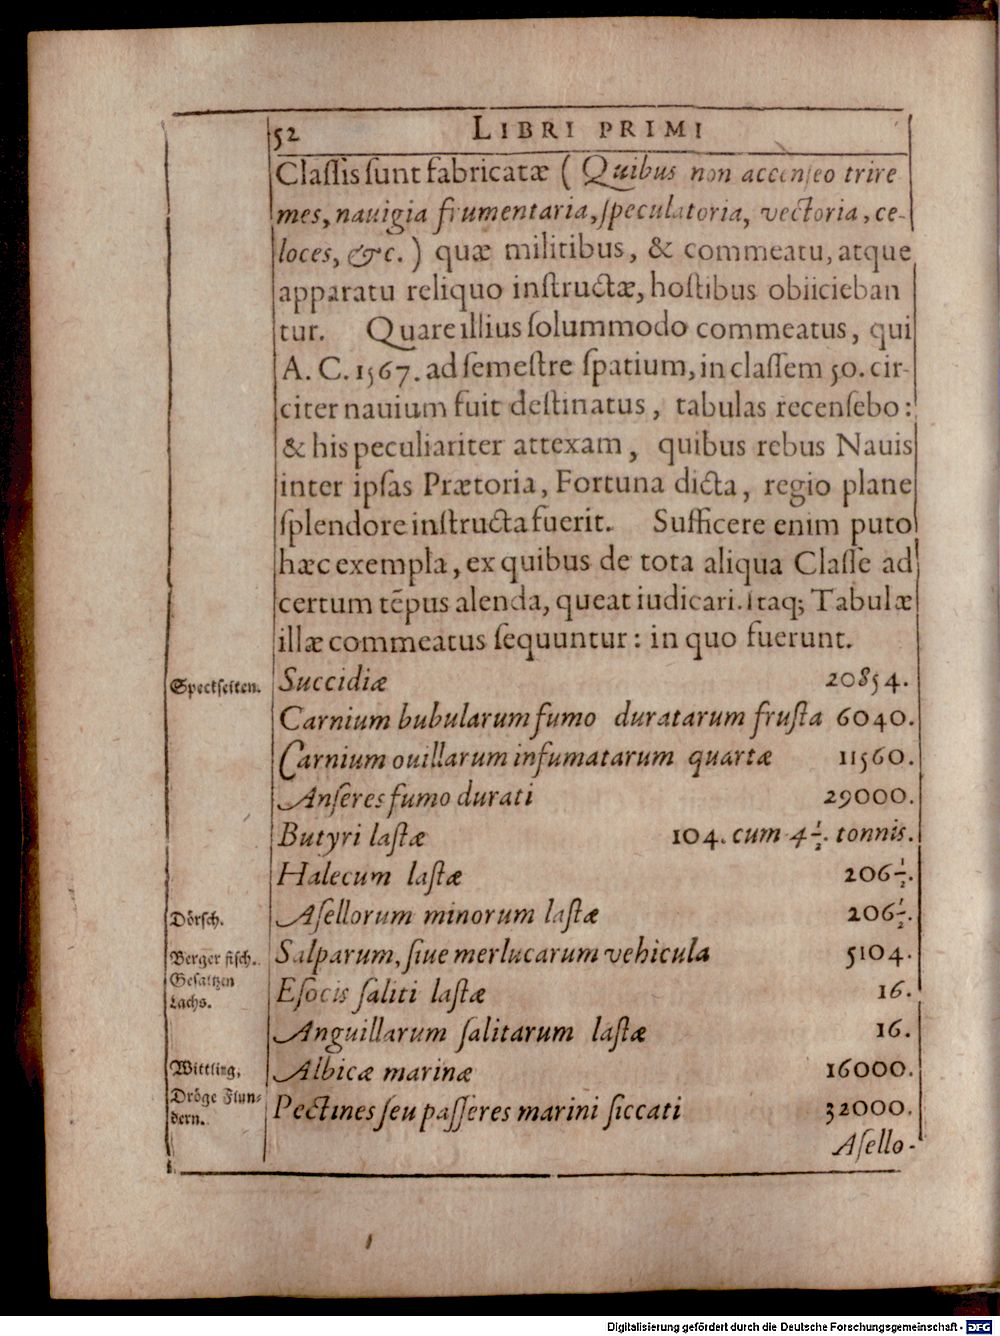 52 LIBRI PRIMI
Classis sunt fabricatæ ( Quibus non accenseo trire
mes, nauigia frumentaria, speculatoria, vectoria, ce-
loces, &c. ) quæ militibus, & commeatu, atque
apparatu reliquo instructæ, hostibus obiicieban
tur. Quare illius solummodo commeatus, qui
A. C. 1567. ad semestre spatium, in classem 50. cir-
citer nauium fuit destinatus, tabulas recensebo:
& his peculiariter attexam, quibus rebus Nauis
inter ipsas Prætoria, Fortuna dicta, regio plane
splendore instructa fuerit. Sufficere enim puto
hæc exempla, ex quibus de tota aliqua Classe ad
certum tēpus alenda, queat iudicari. Itaq; Tabulæ
illæ commeatus sequuntur: in quo fuerunt.
Speckseiten. Succidiæ 20854.
Carnium bubularum fumo duratarum frusta 6040.
Carnium ouillarum infumatarum quartæ 11560.
Anseres fumo durati 29000.
Butyri lastæ 104. cum 4 1/2. tonnis.
Halecum lastæ 206 1/2.
Dörsch. Asellorum minorum lastæ 206 1/2.
Berger fisch. Salparum, siue merlucarum vehicula 5104.
Gesaltzen
Lachs. Esocis saliti lastæ 16.
Anguillarum salitarum lastæ 16.
Wittling, Albicæ marinæ 16000.
Dröge Flun-
dern. Pectines seu passeres marini siccati 32000.
Asello-
Digitalisierung gefördert durch die Deutsche Forschungsgemeinschaft - DFG